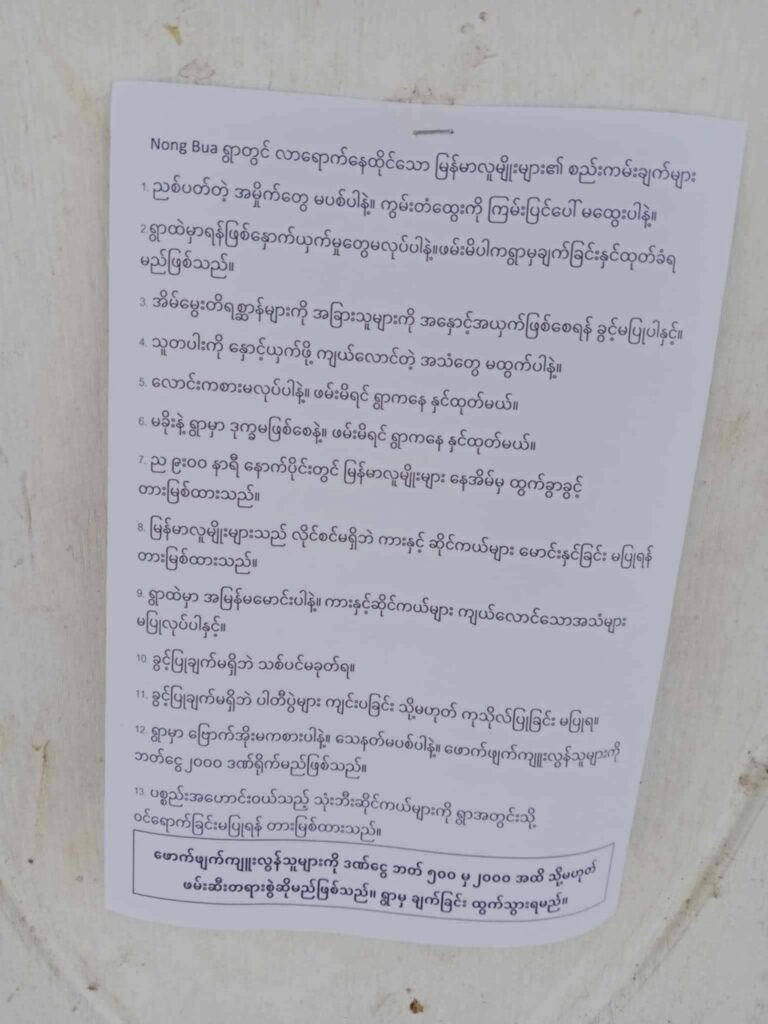 Nong Bua ရွာတွင် လာရောက်နေထိုင်သော မြန်မာလူမျိုးများ၏ စည်းကမ်းချက်များ
1. ညစ်ပတ်တဲ့ အမှိုက်တွေ မပစ်ပါနဲ့။ ကွမ်းတံထွေးကို ကြမ်းပြင်ပေါ် မထွေးပါနဲ့။
2.ရွာထဲမှာရန်ဖြစ်နှောက်ယှက်မှုတွေမလုပ်ပါနဲ့။ဖမ်းမိပါကရွာမှချက်ခြင်းနှင်ထုတ်ခံရ
မည်ဖြစ်သည်။
3. အိမ်မွေးတိရစ္ဆာန်များကို အခြားသူများကို အနှောင့်အယှက်ဖြစ်စေရန် ခွင့်မပြုပါနှင့်။
4. သူတပါးကို နှောင့်ယှက်ဖို့ ကျယ်လောင်တဲ့ အသံတွေ မထွက်ပါနဲ့။
5. လောင်းကစားမလုပ်ပါနဲ့။ ဖမ်းမိရင် ရွာကနေ နှင်ထုတ်မယ်။
6. မခိုးနဲ့ ရွာမှာ ဒုက္ခမဖြစ်စေနဲ့။ ဖမ်းမိရင် ရွာကနေ နှင်ထုတ်မယ်။
7. ည ၉း၀၀ နာရီ နောက်ပိုင်းတွင် မြန်မာလူမျိုးများ နေအိမ်မှ ထွက်ခွာခွင့်
တားမြစ်ထားသည်။
8. မြန်မာလူမျိုးများသည် လိုင်စင်မရှိဘဲ ကားနှင့် ဆိုင်ကယ်များ မောင်းနှင်ခြင်း မပြုရန်
တားမြစ်ထားသည်။
9. ရွာထဲမှာ အမြန်မမောင်းပါနဲ့။ ကားနှင့်ဆိုင်ကယ်များ ကျယ်လောင်သောအသံများ
မပြုလုပ်ပါနှင့်။
10. ခွင့်ပြုချက်မရှိဘဲ သစ်ပင်မခုတ်ရ။
11. ခွင့်ပြုချက်မရှိဘဲ ပါတီပွဲများ ကျင်းပခြင်း သို့မဟုတ် ကုသိုလ်ပြုခြင်း မပြုရ။
12. ရွာမှာ ဗြောက်အိုးမကစားပါနဲ့။ သေနတ်မပစ်ပါနဲ့။ ဖောက်ဖျက်ကျူးလွန်သူများကို
ဘတ်ငွေ၂၀၀၀ ဒဏ်ရိုက်မည်ဖြစ်သည်။
13. ပစ္စည်းအဟောင်းဝယ်သည့် သုံးဘီးဆိုင်ကယ်များကို ရွာအတွင်းသို့
ဝင်ရောက်ခြင်းမပြုရန် တားမြစ်ထားသည်။
ဖောက်ဖျက်ကျူးလွန်သူများကို ဒဏ်ငွေ ဘတ် ၅၀၀ မှ ၂၀၀၀ အထိ သို့မဟုတ်
ဖမ်းဆီးတရားစွဲဆိုမည်ဖြစ်သည်။ ရွာမှ ချက်ခြင်း ထွက်သွားရမည်။